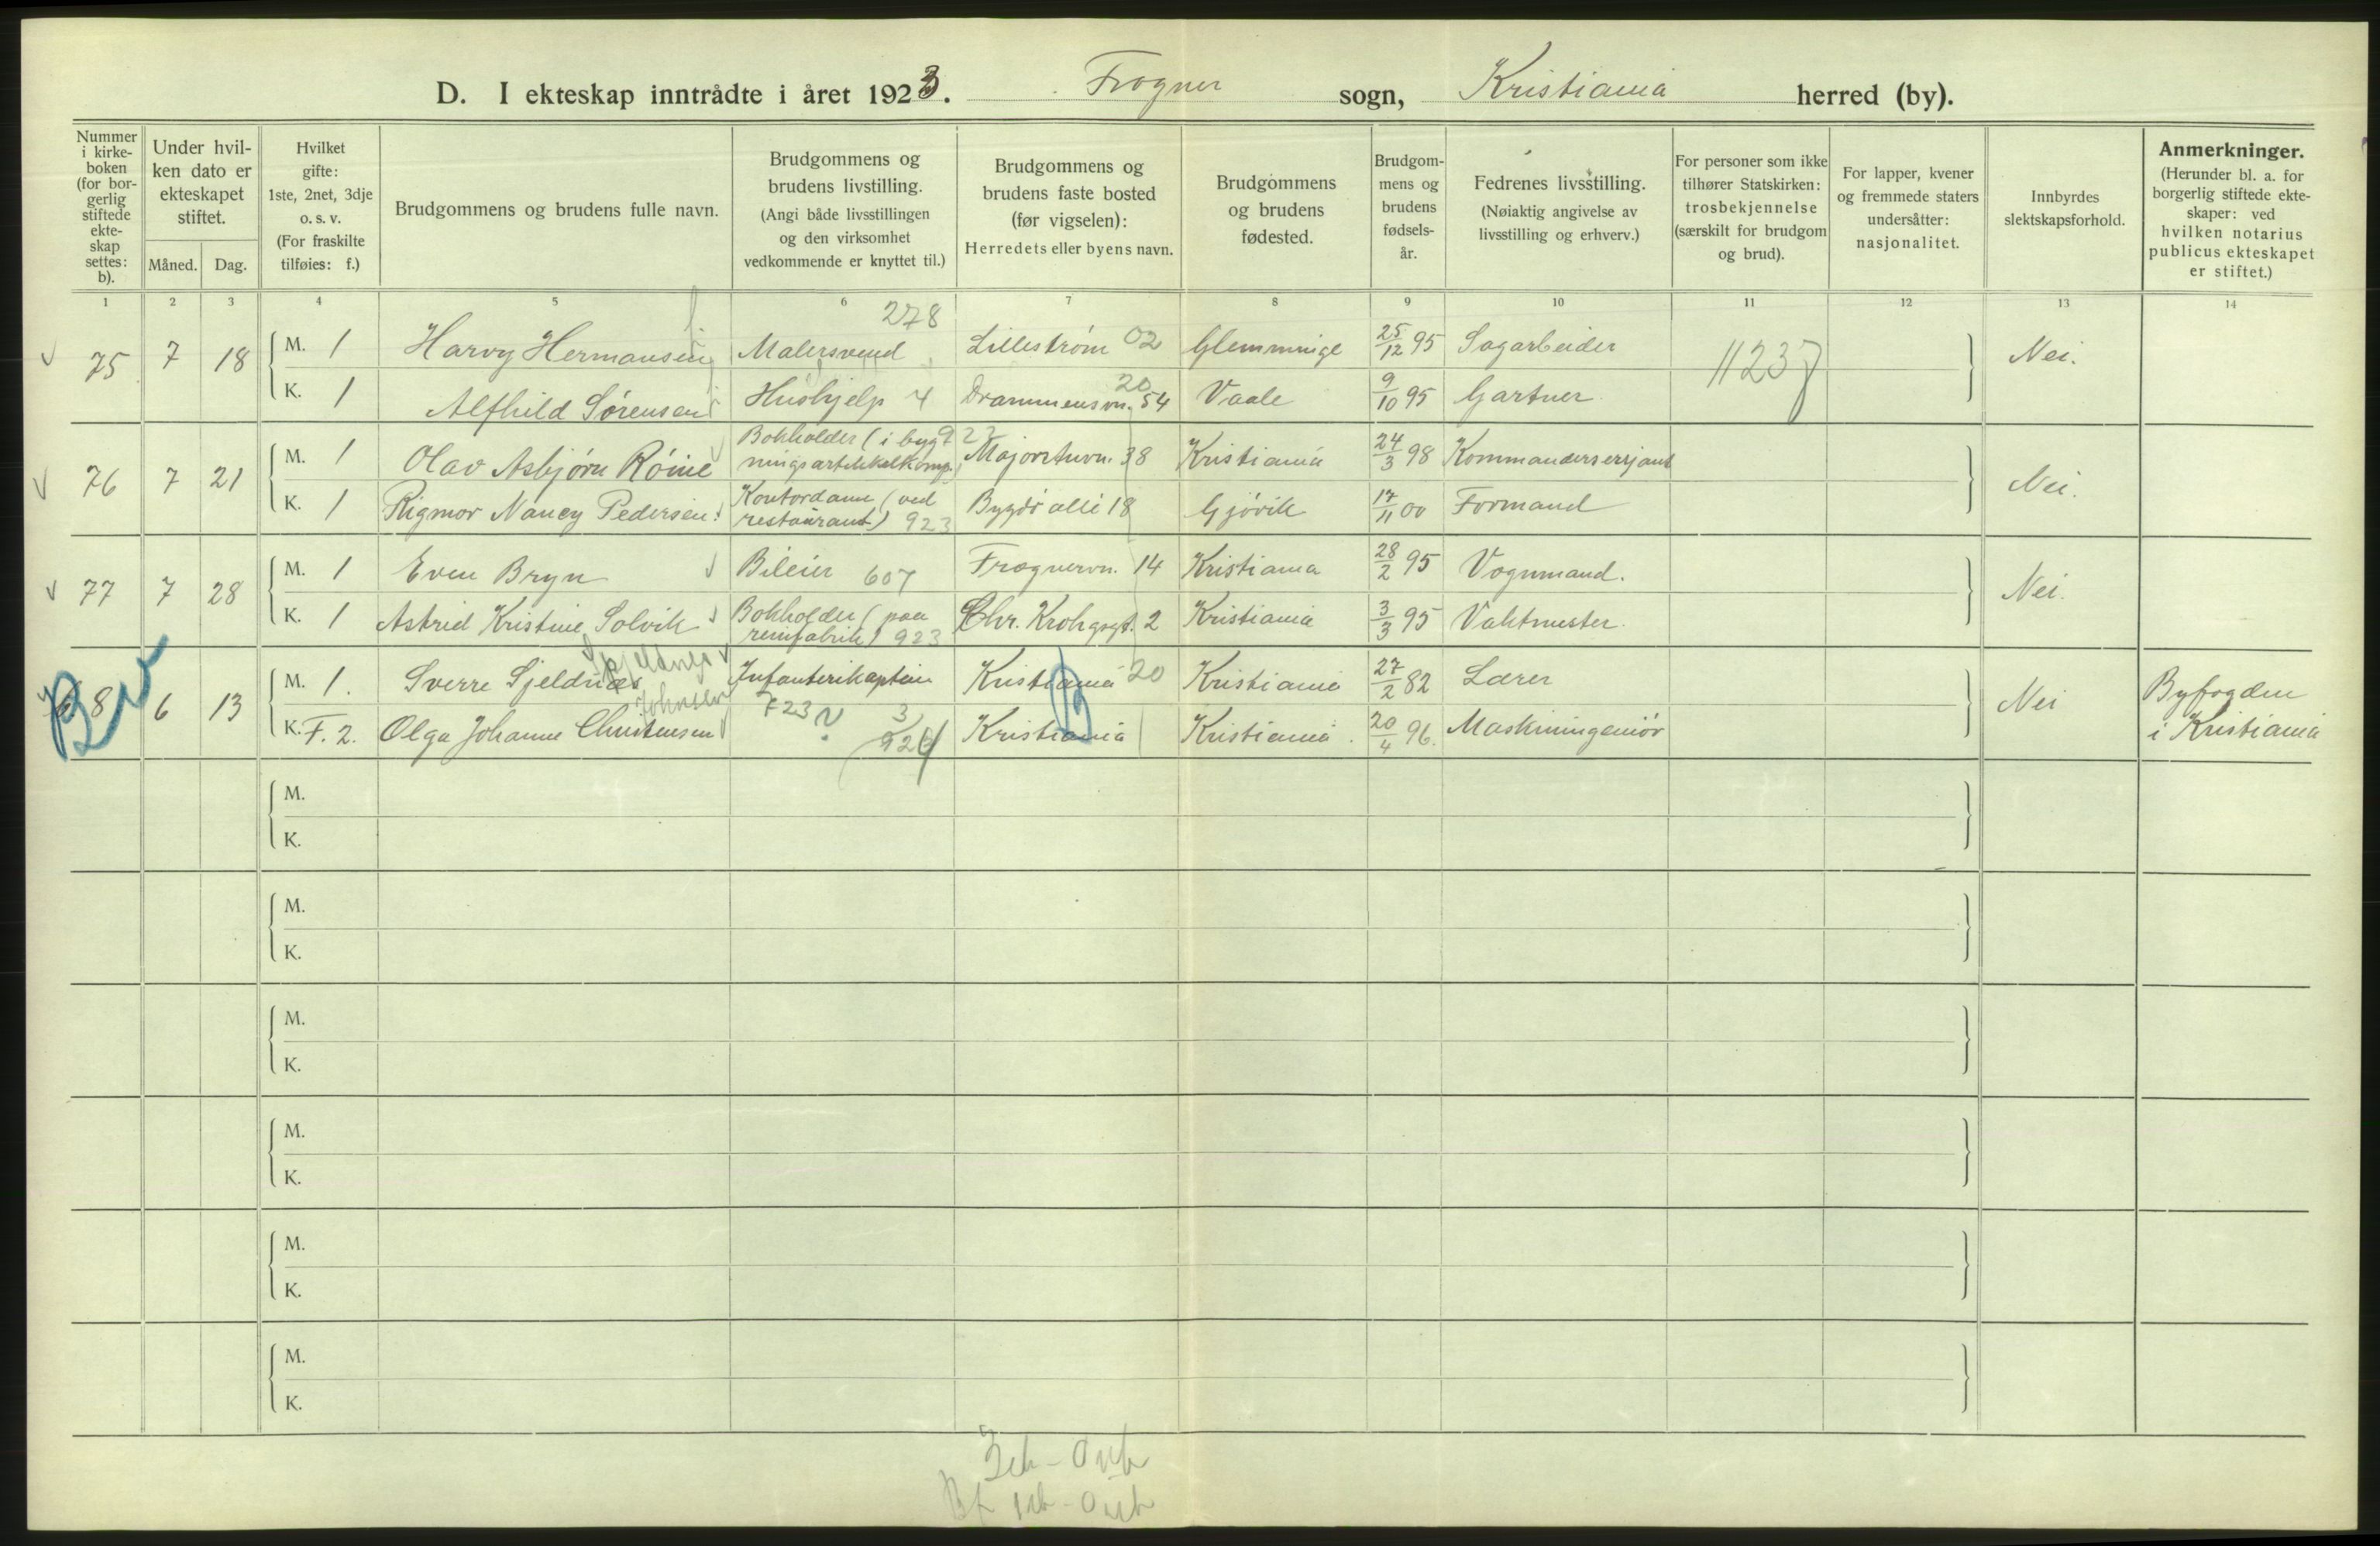 D. I ekteskap inntrådte i året 1923. Frogner sogn, Kristiania herred (by).
Nummer i kirke-boken (for bor-gerlig stiftede ekte-skap settes: b).
Under hvil-ken dato er ekteskapet stiftet.
Måned. Dag.
Hvilket gifte: 1ste, 2net, 3dje o. s. v. (For fraskilte tilføies: f.)
Brudgommens og brudens fulle navn.
Brudgommens og brudens livstilling. (Angi både livsstillingen og den virksomhet vedkommende er knyttet til.)
Brudgommens og brudens faste bosted (før vigselen): Herredets eller byens navn.
Brudgommens og brudens fødested.
Brudgom-mens og brudens fødsels-år.
Fedrenes livsstilling. (Nøiaktig angivelse av livsstilling og erhverv.)
For personer som ikke tilhører Statskirken: trosbekjennelse (særskilt for brudgom og brud).
For lapper, kvener og fremmede staters undersåtter: nasjonalitet.
Innbyrdes slektskapsforhold.
Anmerkninger. (Herunder bl. a. for borgerlig stiftede ekte-skaper: ved hvilken notarius publicus ekteskapet er stiftet.)
1 2 3 4 5 6 7 8 9 10 11 12 13 14
278
75 7 18 M. 1 Harvy Hermansen Malersvend Lillestrøm 02 Glemminge 25/12 95 Sagarbeider 11237 Nei.
K. 1 Alfhild Sørensen Hushjelp 4 Drammensvn. 54 20 Vaale 9/10 95 Gartner
76 7 21 M. 1 Olav Asbjørn Røine Bokholder (i bygningsartikkelkomp. Majorstuvn. 38 Kristiania 24/3 98 Kommandersersjant Nei.
K. 1 Rigmor Nancy Pedersen Kontordame (ved restaurant) 923 Bygdø allé 18 Gjøvik 17/11 00 Formand
77 7 28 M. 1 Even Bryn Bileier 607 Frognervn. 14 Kristiania 28/2 95 Vognmand. Nei.
K. 1 Astrid Kristine Solvik Bokholder (paa remfabrik) 923 Chr. Krohgsgt. 2 Kristiania 3/3 95 Vaktmester.
Spjeldnæs
78 6 13 M. 1. Sverre Sjeldnæs Infanterikaptein Kristiania 20 Kristiania 27/2 82 Lærer Nei Byfogden i Kristiania
Johnsen
K. F. 2. Olga Johanne Christensen 723 ? 3 924 Kristiania Kristiania 20/4 96. Maskiningeniør
B
M.
K.
M.
K.
M.
K.
M.
K.
M.
K.
M.
K.